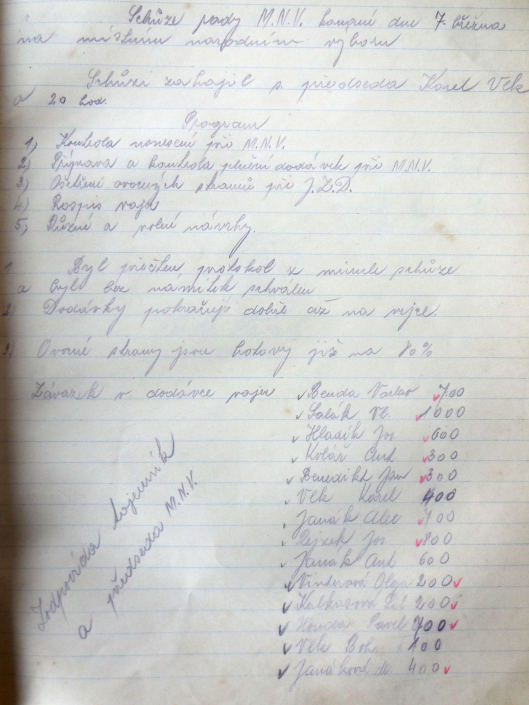 Schůze rady M.N.V. konané dne 7. března
na místním národním výboru
Schůzi zahájil s. předseda Karel Vlk
o 20 hod.
Program
1) Kontrola usnesení při M.N.V.
2) Příprava a kontrola plnění dodávek při M.N.V.
3) Ošetření ovocných stromů při J.Z.D.
4) Rozpis vajec
5) Různé a volné návrhy.
1. Byl přečten protokol z minulé schůze
a byl bez námitek schválen
2) Dodávky pokračují dobře až na vejce.
3) Ovocné stromy jsou hotovy již na 80%
Závazek v dodávce vajec
Benda Václav 700
Salák Vl. 1000
Hladík Jos. 600
Kolář Ant. 300
Benedikt Jan 300
Vlk Karel 400
Janák Alec
Jos. 800
Janák Ant. 600
Olga 200
200
Pavel
Vlk Boh. 100
Janáková M. 400
Zodpovídá tajemník
a předseda M.N.V.